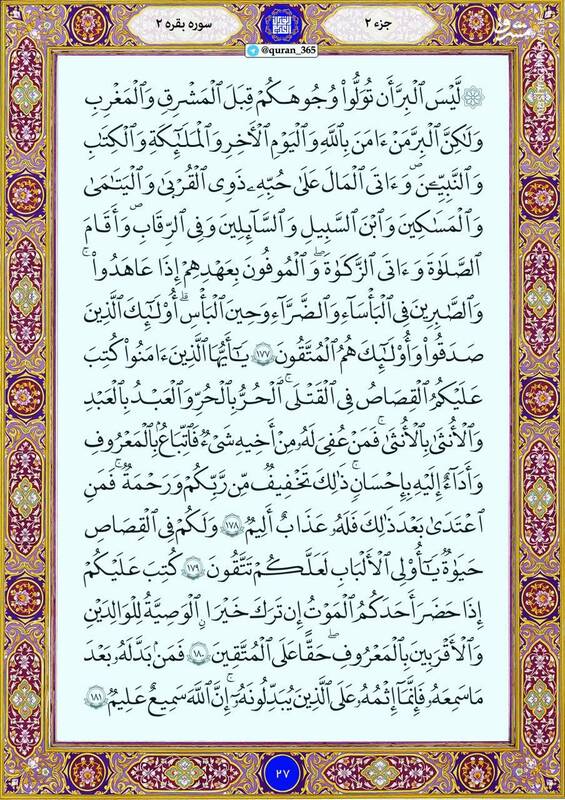 جزء ۲
سوره بقره ۲
@quran_365
مشرق
۞ لَّيْسَ ٱلْبِرَّ أَن تُوَلُّوا۟ وُجُوهَكُمْ قِبَلَ ٱلْمَشْرِقِ وَٱلْمَغْرِبِ
وَلَٰكِنَّ ٱلْبِرَّ مَنْ ءَامَنَ بِٱللَّهِ وَٱلْيَوْمِ ٱلْأَخِرِ وَٱلْمَلَٰٓئِكَةِ وَٱلْكِتَٰبِ
وَٱلنَّبِيِّۦنَ وَءَاتَى ٱلْمَالَ عَلَىٰ حُبِّهِۦ ذَوِى ٱلْقُرْبَىٰ وَٱلْيَتَٰمَىٰ
وَٱلْمَسَٰكِينَ وَٱبْنَ ٱلسَّبِيلِ وَٱلسَّآئِلِينَ وَفِى ٱلرِّقَابِ وَأَقَامَ
ٱلصَّلَوٰةَ وَءَاتَى ٱلزَّكَوٰةَ وَٱلْمُوفُونَ بِعَهْدِهِمْ إِذَا عَٰهَدُوا۟ ۖ
وَٱلصَّٰبِرِينَ فِى ٱلْبَأْسَآءِ وَٱلضَّرَّآءِ وَحِينَ ٱلْبَأْسِ ۗ أُو۟لَٰٓئِكَ ٱلَّذِينَ
صَدَقُوا۟ وَأُو۟لَٰٓئِكَ هُمُ ٱلْمُتَّقُونَ ١٧٧ يَٰٓأَيُّهَا ٱلَّذِينَ ءَامَنُوا۟ كُتِبَ
عَلَيْكُمُ ٱلْقِصَاصُ فِى ٱلْقَتْلَى ۖ ٱلْحُرُّ بِٱلْحُرِّ وَٱلْعَبْدُ بِٱلْعَبْدِ
وَٱلْأُنثَىٰ بِٱلْأُنثَىٰ ۚ فَمَنْ عُفِىَ لَهُۥ مِنْ أَخِيهِ شَىْءٌ فَٱتِّبَاعٌۢ بِٱلْمَعْرُوفِ
وَأَدَآءٌ إِلَيْهِ بِإِحْسَٰنٍ ۗ ذَٰلِكَ تَخْفِيفٌ مِّن رَّبِّكُمْ وَرَحْمَةٌ ۗ فَمَنِ
ٱعْتَدَىٰ بَعْدَ ذَٰلِكَ فَلَهُۥ عَذَابٌ أَلِيمٌ ١٧٨ وَلَكُمْ فِى ٱلْقِصَاصِ
حَيَوٰةٌ يَٰٓأُو۟لِى ٱلْأَلْبَٰبِ لَعَلَّكُمْ تَتَّقُونَ ١٧٩ كُتِبَ عَلَيْكُمْ
إِذَا حَضَرَ أَحَدَكُمُ ٱلْمَوْتُ إِن تَرَكَ خَيْرًا ٱلْوَصِيَّةُ لِلْوَٰلِدَيْنِ
وَٱلْأَقْرَبِينَ بِٱلْمَعْرُوفِ ۖ حَقًّا عَلَى ٱلْمُتَّقِينَ ١٨٠ فَمَنۢ بَدَّلَهُۥ بَعْدَ
مَا سَمِعَهُۥ فَإِنَّمَآ إِثْمُهُۥ عَلَى ٱلَّذِينَ يُبَدِّلُونَهُۥٓ ۚ إِنَّ ٱللَّهَ سَمِيعٌ عَلِيمٌ ١٨١
۲۷